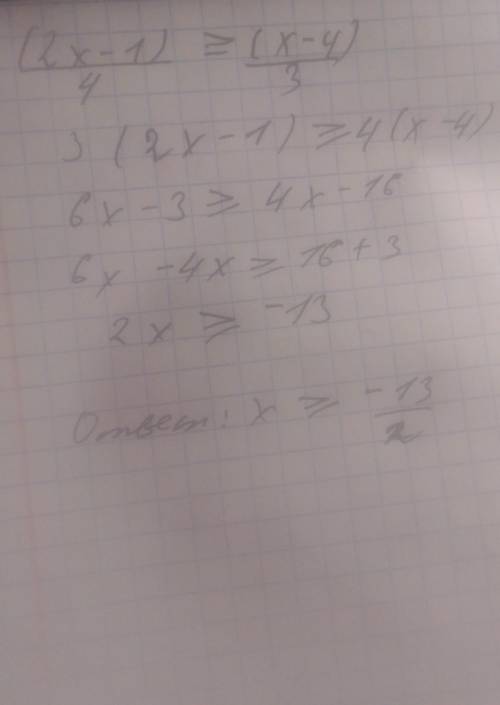 (2x-1)/4 ≥ (x-4)/3
3(2x-1)≥4(x-4)
6x-3≥4x-16
6x-4x≥16+3
2x≥-13
Ответ: x≥-13/2